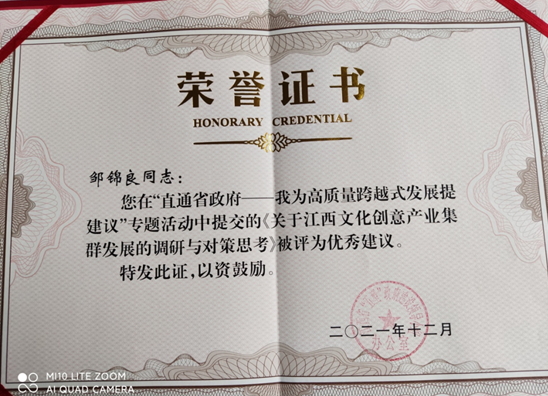 荣誉证书
HONORARY CREDENTIAL
邹锦良同志：
您在“直通省政府——我为高质量跨越式发展提
建议”专题活动中提交的《关于江西文化创意产业集
群发展的调研与对策思考》被评为优秀建议。
特发此证，以资鼓励。
办公室
二〇二一年十二月
MI10 LITE ZOOM
AI QUAD CAMERA